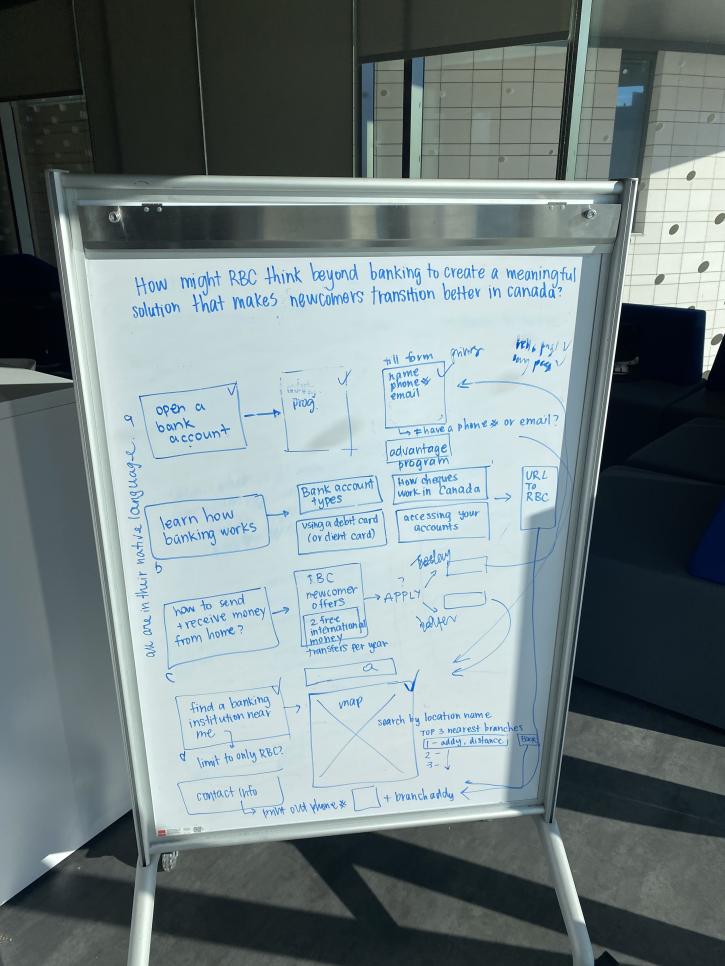 How might RBC think beyond banking to create a meaningful
solution that makes newcomers transition better in canada?
all are in their native language.
a
open a
bank
account
prog.
fill form
name
phone #
email
≠ have a phone # or email?
advantage
program
b
learn how
banking works
Bank account
types
using a debit card
(or client card)
How cheques
work in Canada
accessing your
accounts
URL
TO
RBC
c
how to send
+ receive money
from home?
RBC
newcomer
offers
2 free
international
money
transfers per year
?
APPLY
d
find a banking
institution near
me
limit to only RBC?
map
search by location name
TOP 3 nearest branches
1 - addy, distance
2 -
3 -
contact info
print out phone #
+ branch addy